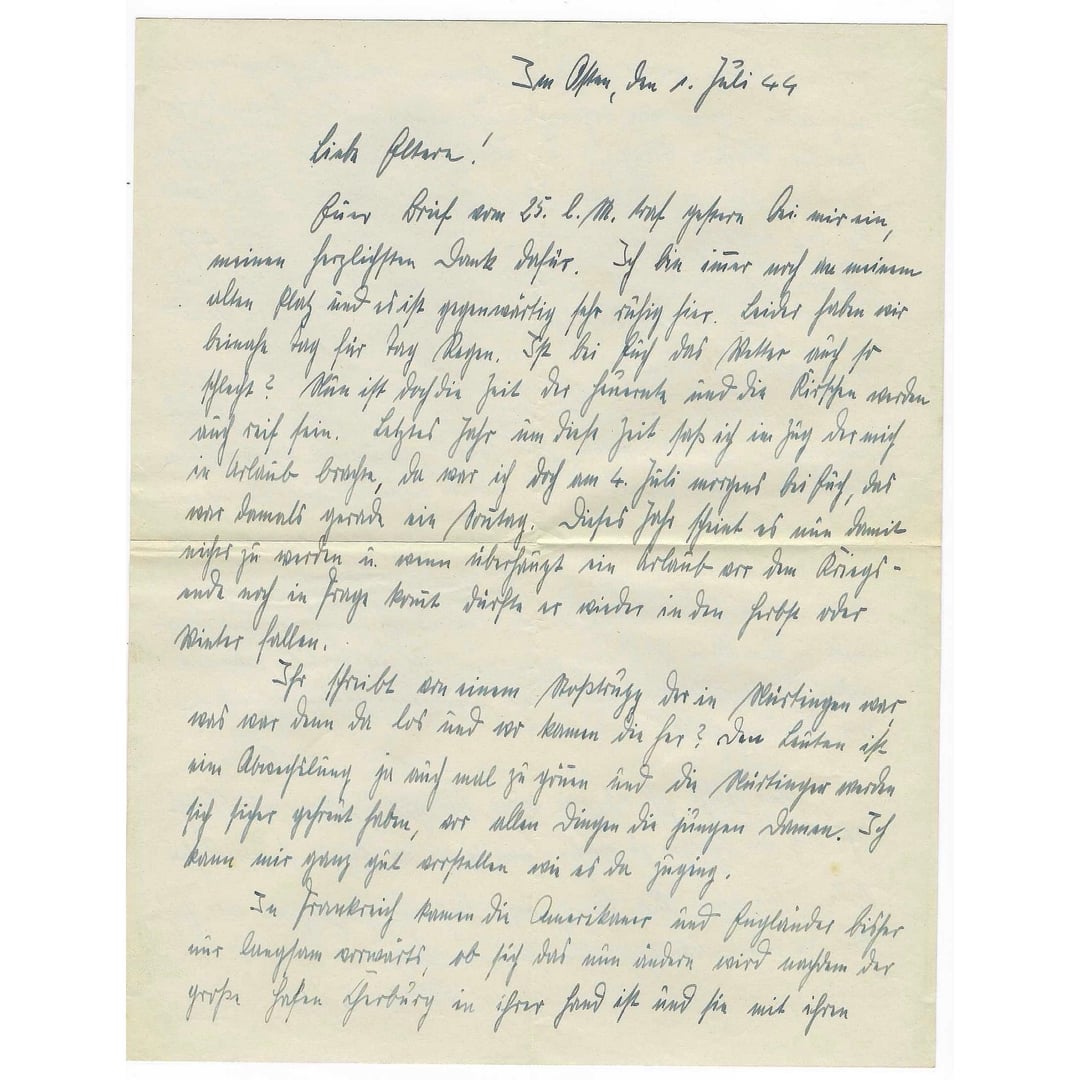 Im Osten, den 1. Juli 44
Liebe Eltern!
Euer Brief vom 25. l. M. traf gestern bei mir ein,
meinen herzlichsten Dank dafür. Ich bin im̅er noch an meinem
alten Platz und es ist gegenwärtig sehr ruhig hier. Leider haben wir
beinahe Tag für Tag Regen. Ist bei Euch das Wetter auch so
schlecht? Nun ist doch die Zeit der Heuernte und die Kirschen werden
auch reif sein. Letztes Jahr um diese Zeit saß ich im Zug der mich
in Urlaub brachte, da war ich doch am 4. Juli morgens bei Euch, das
war damals gerade ein Sonntag. Dieses Jahr scheint es nun damit
nichts zu werden u. wenn überhaupt ein Urlaub vor dem Kriegs-
ende noch in Frage kom̅t dürfte er wieder in den Herbst oder
Winter fallen.
Ihr schreibt von einem Stoßtrupp der in Nürtingen war,
was war denn da los und wo kamen die her? Den Leuten ist
eine Abwechslung ja auch mal zu gön̅en und die Nürtinger werden
sich sicher gefreut haben, vor allen Dingen die jungen Damen. Ich
kann mir ganz gut vorstellen wie es da zuging.
In Frankreich kamen die Amerikaner und Engländer bisher
nur langsam vorwärts, ob sich das nun ändern wird nachdem der
große Hafen Cherburg in ihrer Hand ist und sie mit ihren